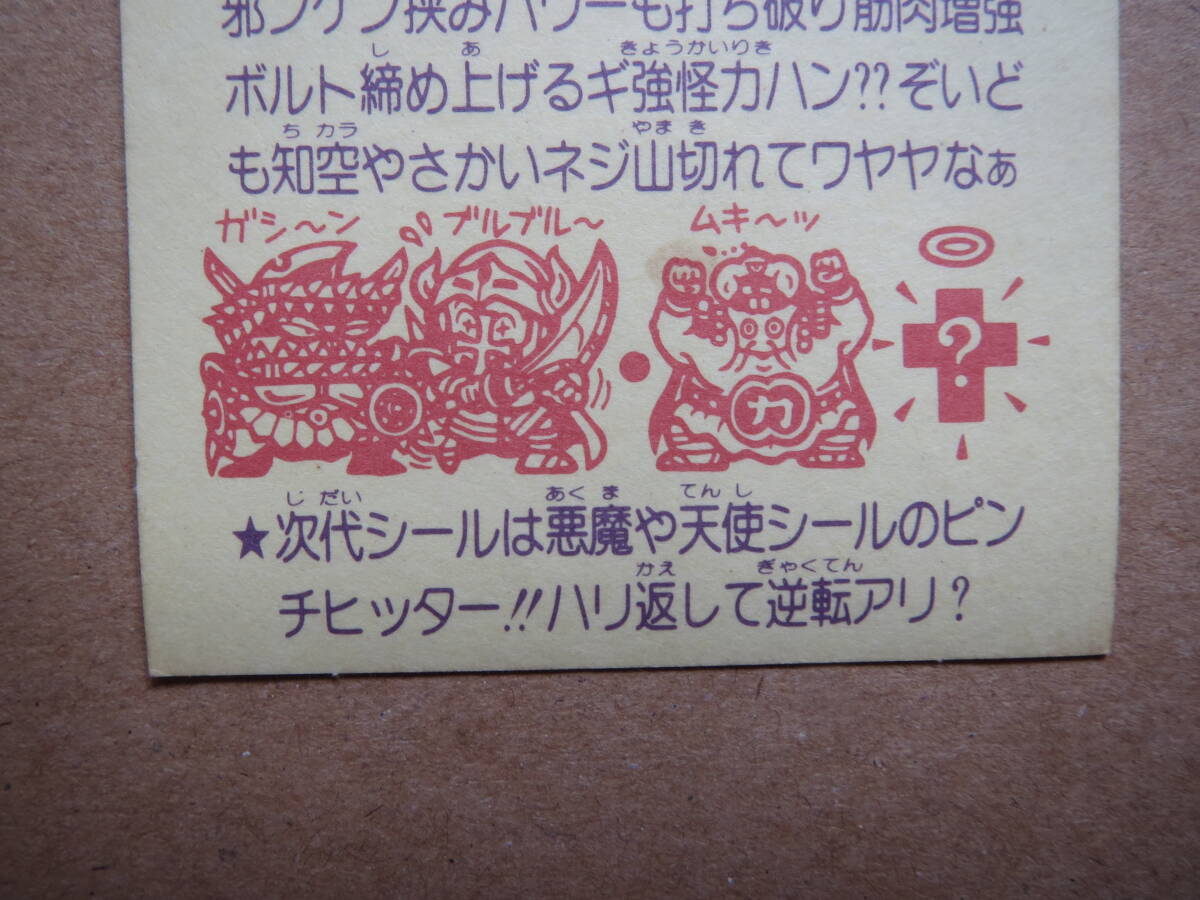 挟みパワーも打ち破り筋肉増強
しあ きょうかいりき
ボルト締め上げるギ強怪力ハン??ぞいど
ちカラ やまき
も知空やさかいネジ山切れてワヤヤなぁ
ガシ〜ン ブルブル〜 ムキ〜ッ
?
力
じだい あくま てんし
★次代シールは悪魔や天使シールのピン
かえ ぎゃくてん
チヒッター!!ハリ返して逆転アリ?